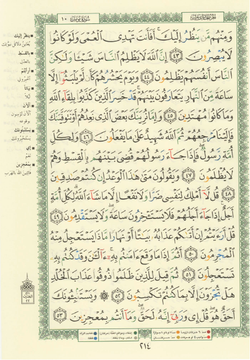 وَمِنْهُم مَّن يَنظُرُ إِلَيْكَ أَفَأَنتَ تَهْدِي الْعُمْيَ وَلَوْ كَانُوا
لَا يُبْصِرُونَ ٤٣ إِنَّ اللَّهَ لَا يَظْلِمُ النَّاسَ شَيْئًا وَلَٰكِنَّ
النَّاسَ أَنفُسَهُمْ يَظْلِمُونَ ٤٤ وَيَوْمَ يَحْشُرُهُمْ كَأَن لَّمْ يَلْبَثُوا إِلَّا
سَاعَةً مِّنَ النَّهَارِ يَتَعَارَفُونَ بَيْنَهُمْ قَدْ خَسِرَ الَّذِينَ كَذَّبُوا بِلِقَاءِ اللَّهِ
وَمَا كَانُوا مُهْتَدِينَ ٤٥ وَإِمَّا نُرِيَنَّكَ بَعْضَ الَّذِي نَعِدُهُمْ أَوْ نَتَوَفَّيَنَّكَ
فَإِلَيْنَا مَرْجِعُهُمْ ثُمَّ اللَّهُ شَهِيدٌ عَلَىٰ مَا يَفْعَلُونَ ٤٦ وَلِكُلِّ
أُمَّةٍ رَّسُولٌ فَإِذَا جَاءَ رَسُولُهُمْ قُضِيَ بَيْنَهُم بِالْقِسْطِ وَهُمْ
لَا يُظْلَمُونَ ٤٧ وَيَقُولُونَ مَتَىٰ هَٰذَا الْوَعْدُ إِن كُنتُمْ صَادِقِينَ
٤٨ قُل لَّا أَمْلِكُ لِنَفْسِي ضَرًّا وَلَا نَفْعًا إِلَّا مَا شَاءَ اللَّهُ لِكُلِّ أُمَّةٍ
أَجَلٌ إِذَا جَاءَ أَجَلُهُمْ فَلَا يَسْتَأْخِرُونَ سَاعَةً وَلَا يَسْتَقْدِمُونَ ٤٩
قُلْ أَرَأَيْتُمْ إِنْ أَتَاكُمْ عَذَابُهُ بَيَاتًا أَوْ نَهَارًا مَّاذَا يَسْتَعْجِلُ مِنْهُ
الْمُجْرِمُونَ ٥٠ أَثُمَّ إِذَا مَا وَقَعَ آمَنتُم بِهِ آلْآنَ وَقَدْ كُنتُم بِهِ
تَسْتَعْجِلُونَ ٥١ ثُمَّ قِيلَ لِلَّذِينَ ظَلَمُوا ذُوقُوا عَذَابَ الْخُلْدِ
هَلْ تُجْزَوْنَ إِلَّا بِمَا كُنتُمْ تَكْسِبُونَ ٥٢ وَيَسْتَنبِئُونَكَ
أَحَقٌّ هُوَ قُلْ إِي وَرَبِّي إِنَّهُ لَحَقٌّ وَمَا أَنتُم بِمُعْجِزِينَ ٥٣
٢١٤